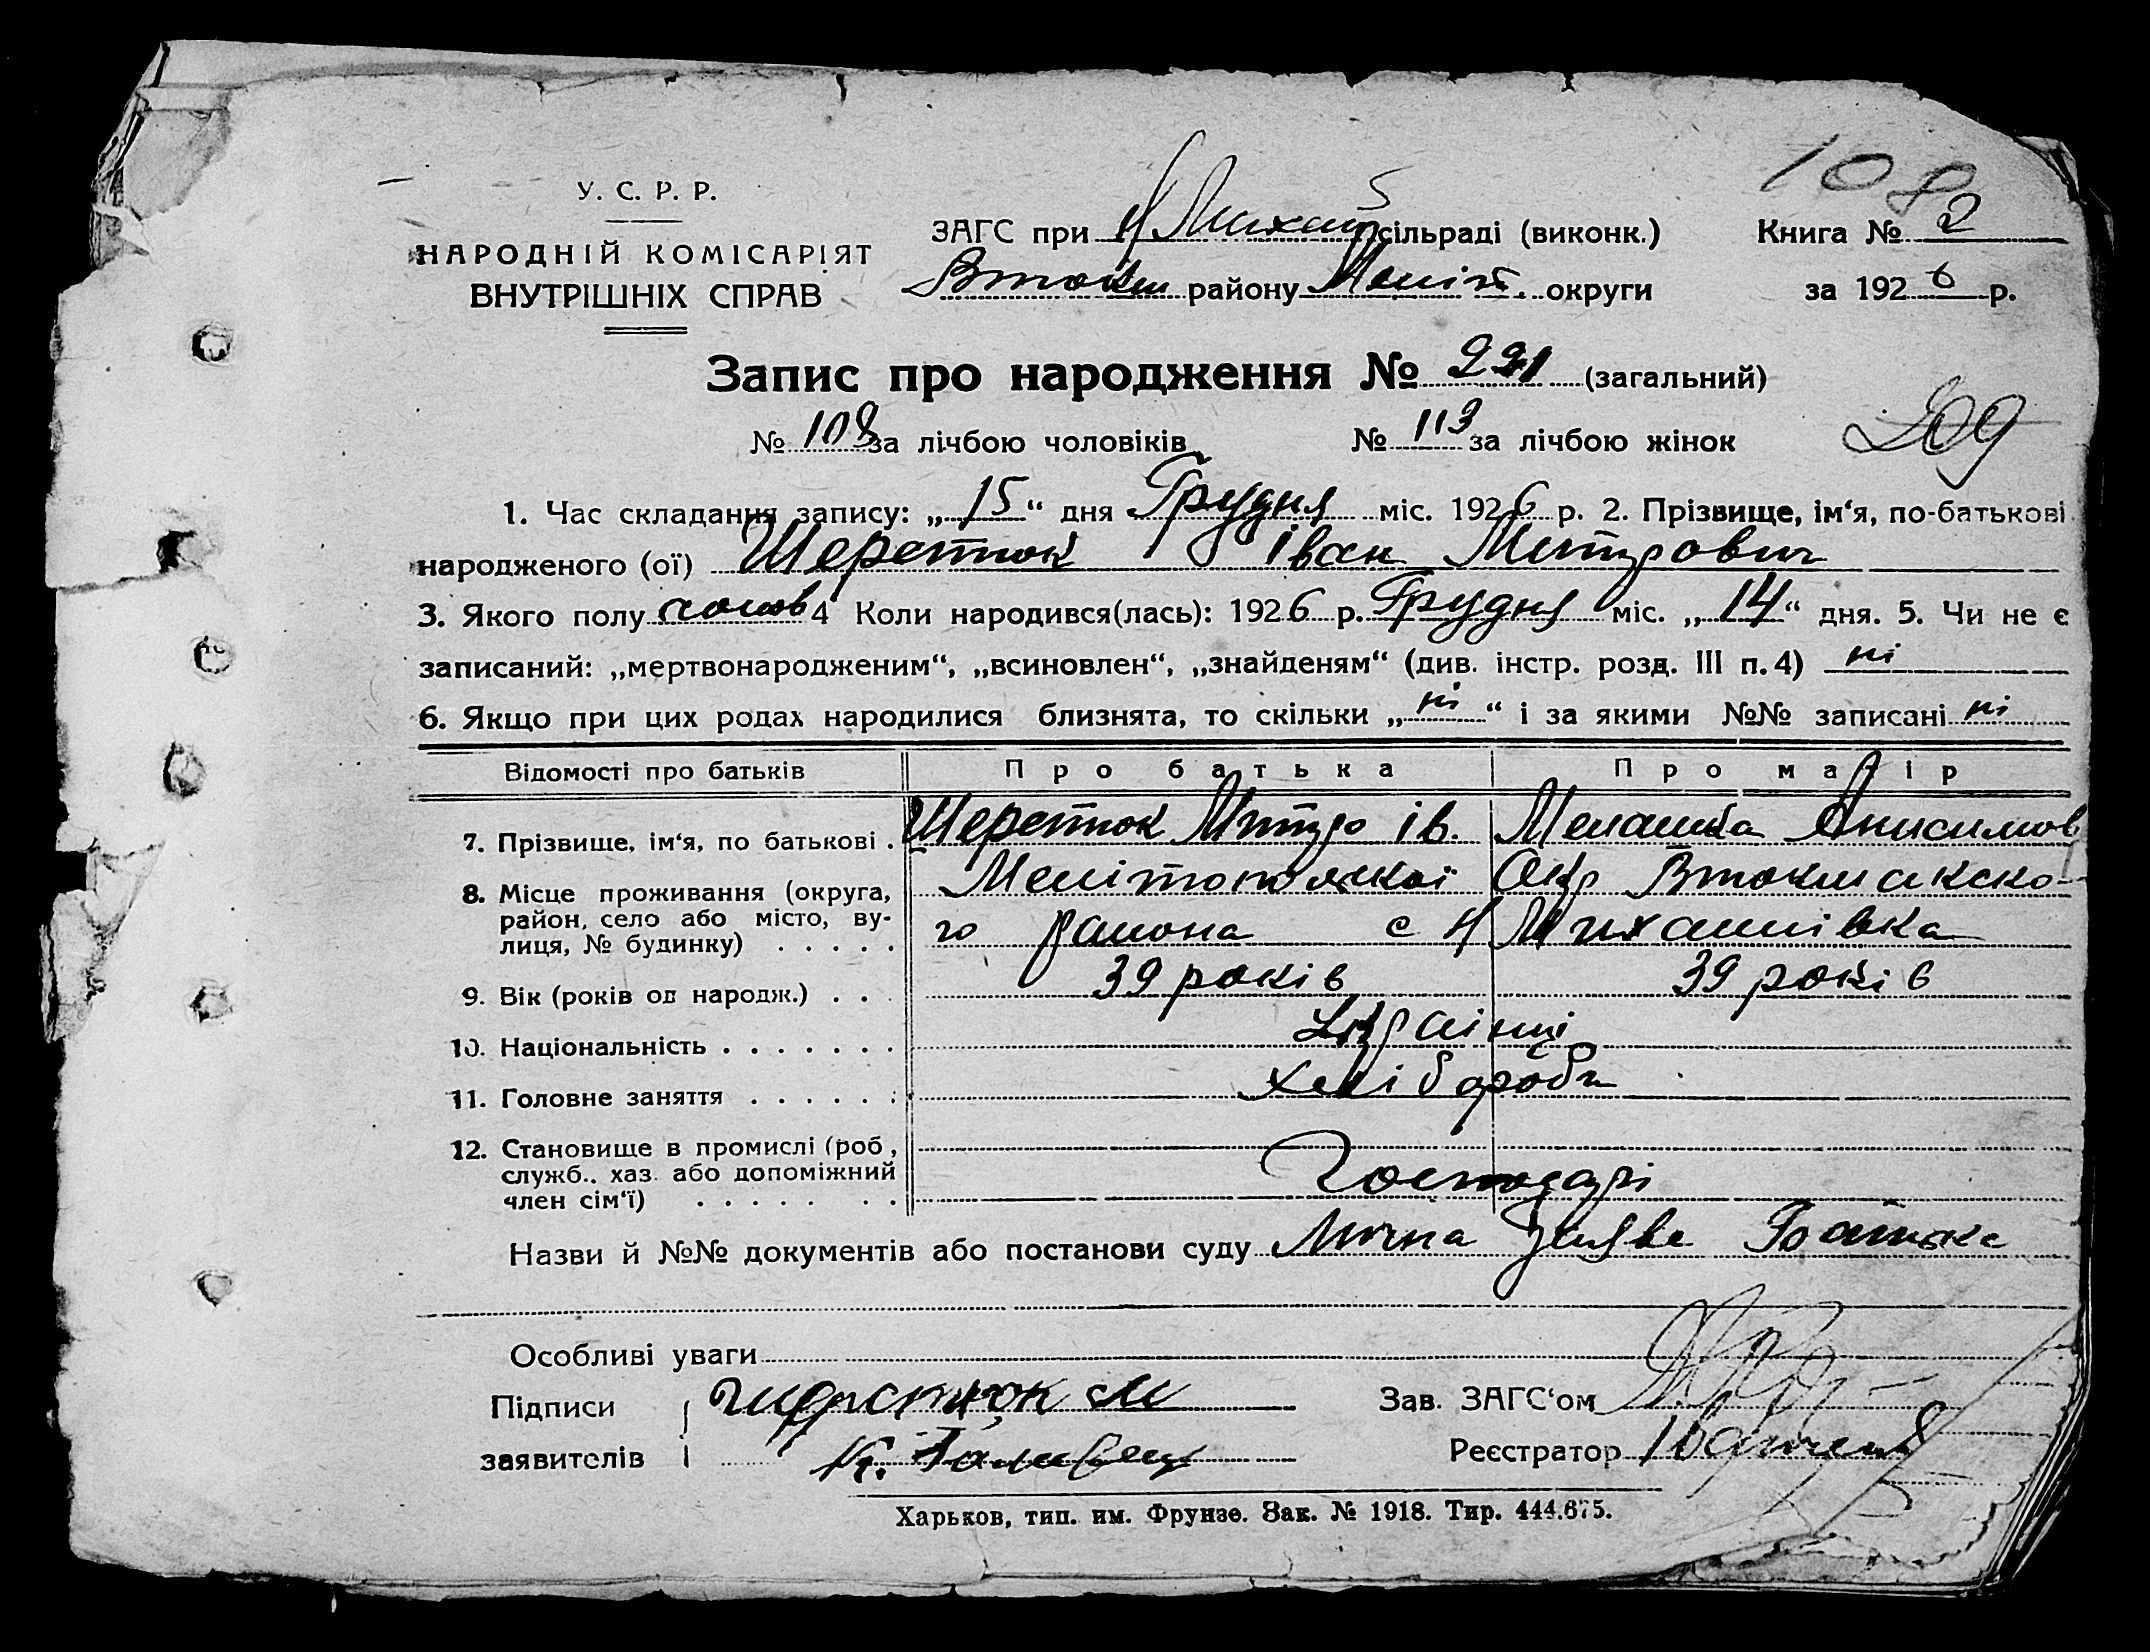 108
У. С. Р. Р.
НАРОДНІЙ КОМІСАРІЯТ
ВНУТРІШНІХ СПРАВ
ЗАГС при Н Михай сільраді (виконк.)
Втокм району Меліт. округи
Книга № 2
за 1926 р.
Запис про народження № 221 (загальний)
№ 108 за лічбою чоловіків № 113 за лічбою жінок
209
1. Час складання запису: „15“ дня Грудня міс. 1926 р. 2. Прізвище, ім‘я, по-батькові
народженого (ої) Шеретюк Іван Митрович
3. Якого полу чолов 4 Коли народився(лась): 1926 р. Грудня міс. „14“ дня. 5. Чи не є
записаний: „мертвонародженим“, „всиновлен“, „знайденям“ (див. інстр. розд. III п. 4) ні
6. Якщо при цих родах народилися близнята, то скільки „ні“ і за якими №№ записані ні
Відомості про батьків Про батька Про матір
7. Прізвище, ім‘я, по батькові . Шеретюк Митро Ів. Мелашка Анисимов
8. Місце проживання (округа, Мелітопольскої Окр Втокмакско-
район, село або місто, ву- го району с Н Михайлівка
лиця, № будинку) . . . . .
9. Вік (років од народж.) . . 39 років 39 років
10. Національність . . . . . . . Українці
11. Головне заняття . . . . . . Хлібороби
12. Становище в промислі (роб,
служб.. хаз. або допоміжний Господарі
член сім‘ї) . . . . . . .
Назви й №№ документів або постанови суду Лична заява Батька
Особливі уваги
Підписи Шеретюк М Зав. ЗАГС‘ом
заявителів Реєстратор
Харьков, тип. им. Фрунзе. Зак. № 1918. Тир. 444.675.